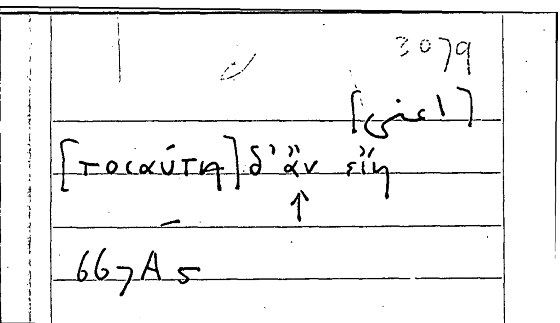 3079
[اعنى]
[τοιαύτη] δ' ἂν εἴη
↑
667A5